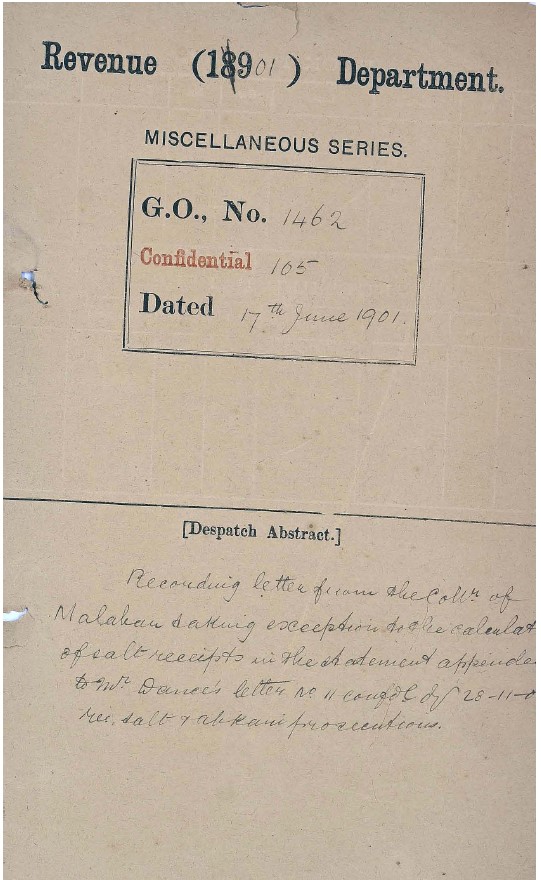 Revenue (1901) Department.
MISCELLANEOUS SERIES.
G.O., No. 1462
Confidential 165
Dated 17th June 1901.
[Despatch Abstract.]
Recording letter from the Collr. of
Malabar taking exception to the calculat
of salt receipts in the statement appende
to Mr. Dance's letter No 11 confdl d/ 28-11-0
re. salt & abkari prosecutions.